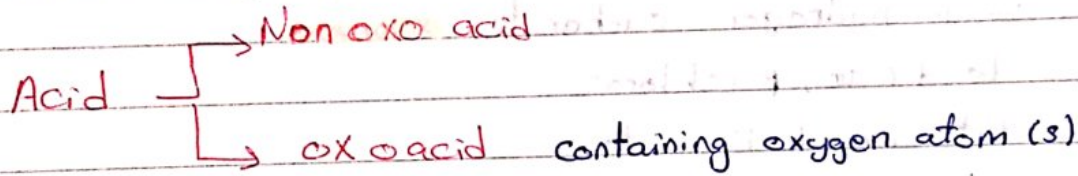 Non oxo acid
Acid
oxoacid containing oxygen atom (s)